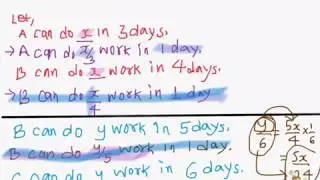 Let,
A can do x in 3 days.
→ A can do x/3 work in 1 day.
B can do x in 4 days.
→ B can do x/4 work in 1 day
B can do y work in 5 days.
B can do y/5 work in 1 day.
C can do y work in 6 days.
y/6 = 5x/4 × 1/6
= 5x/24